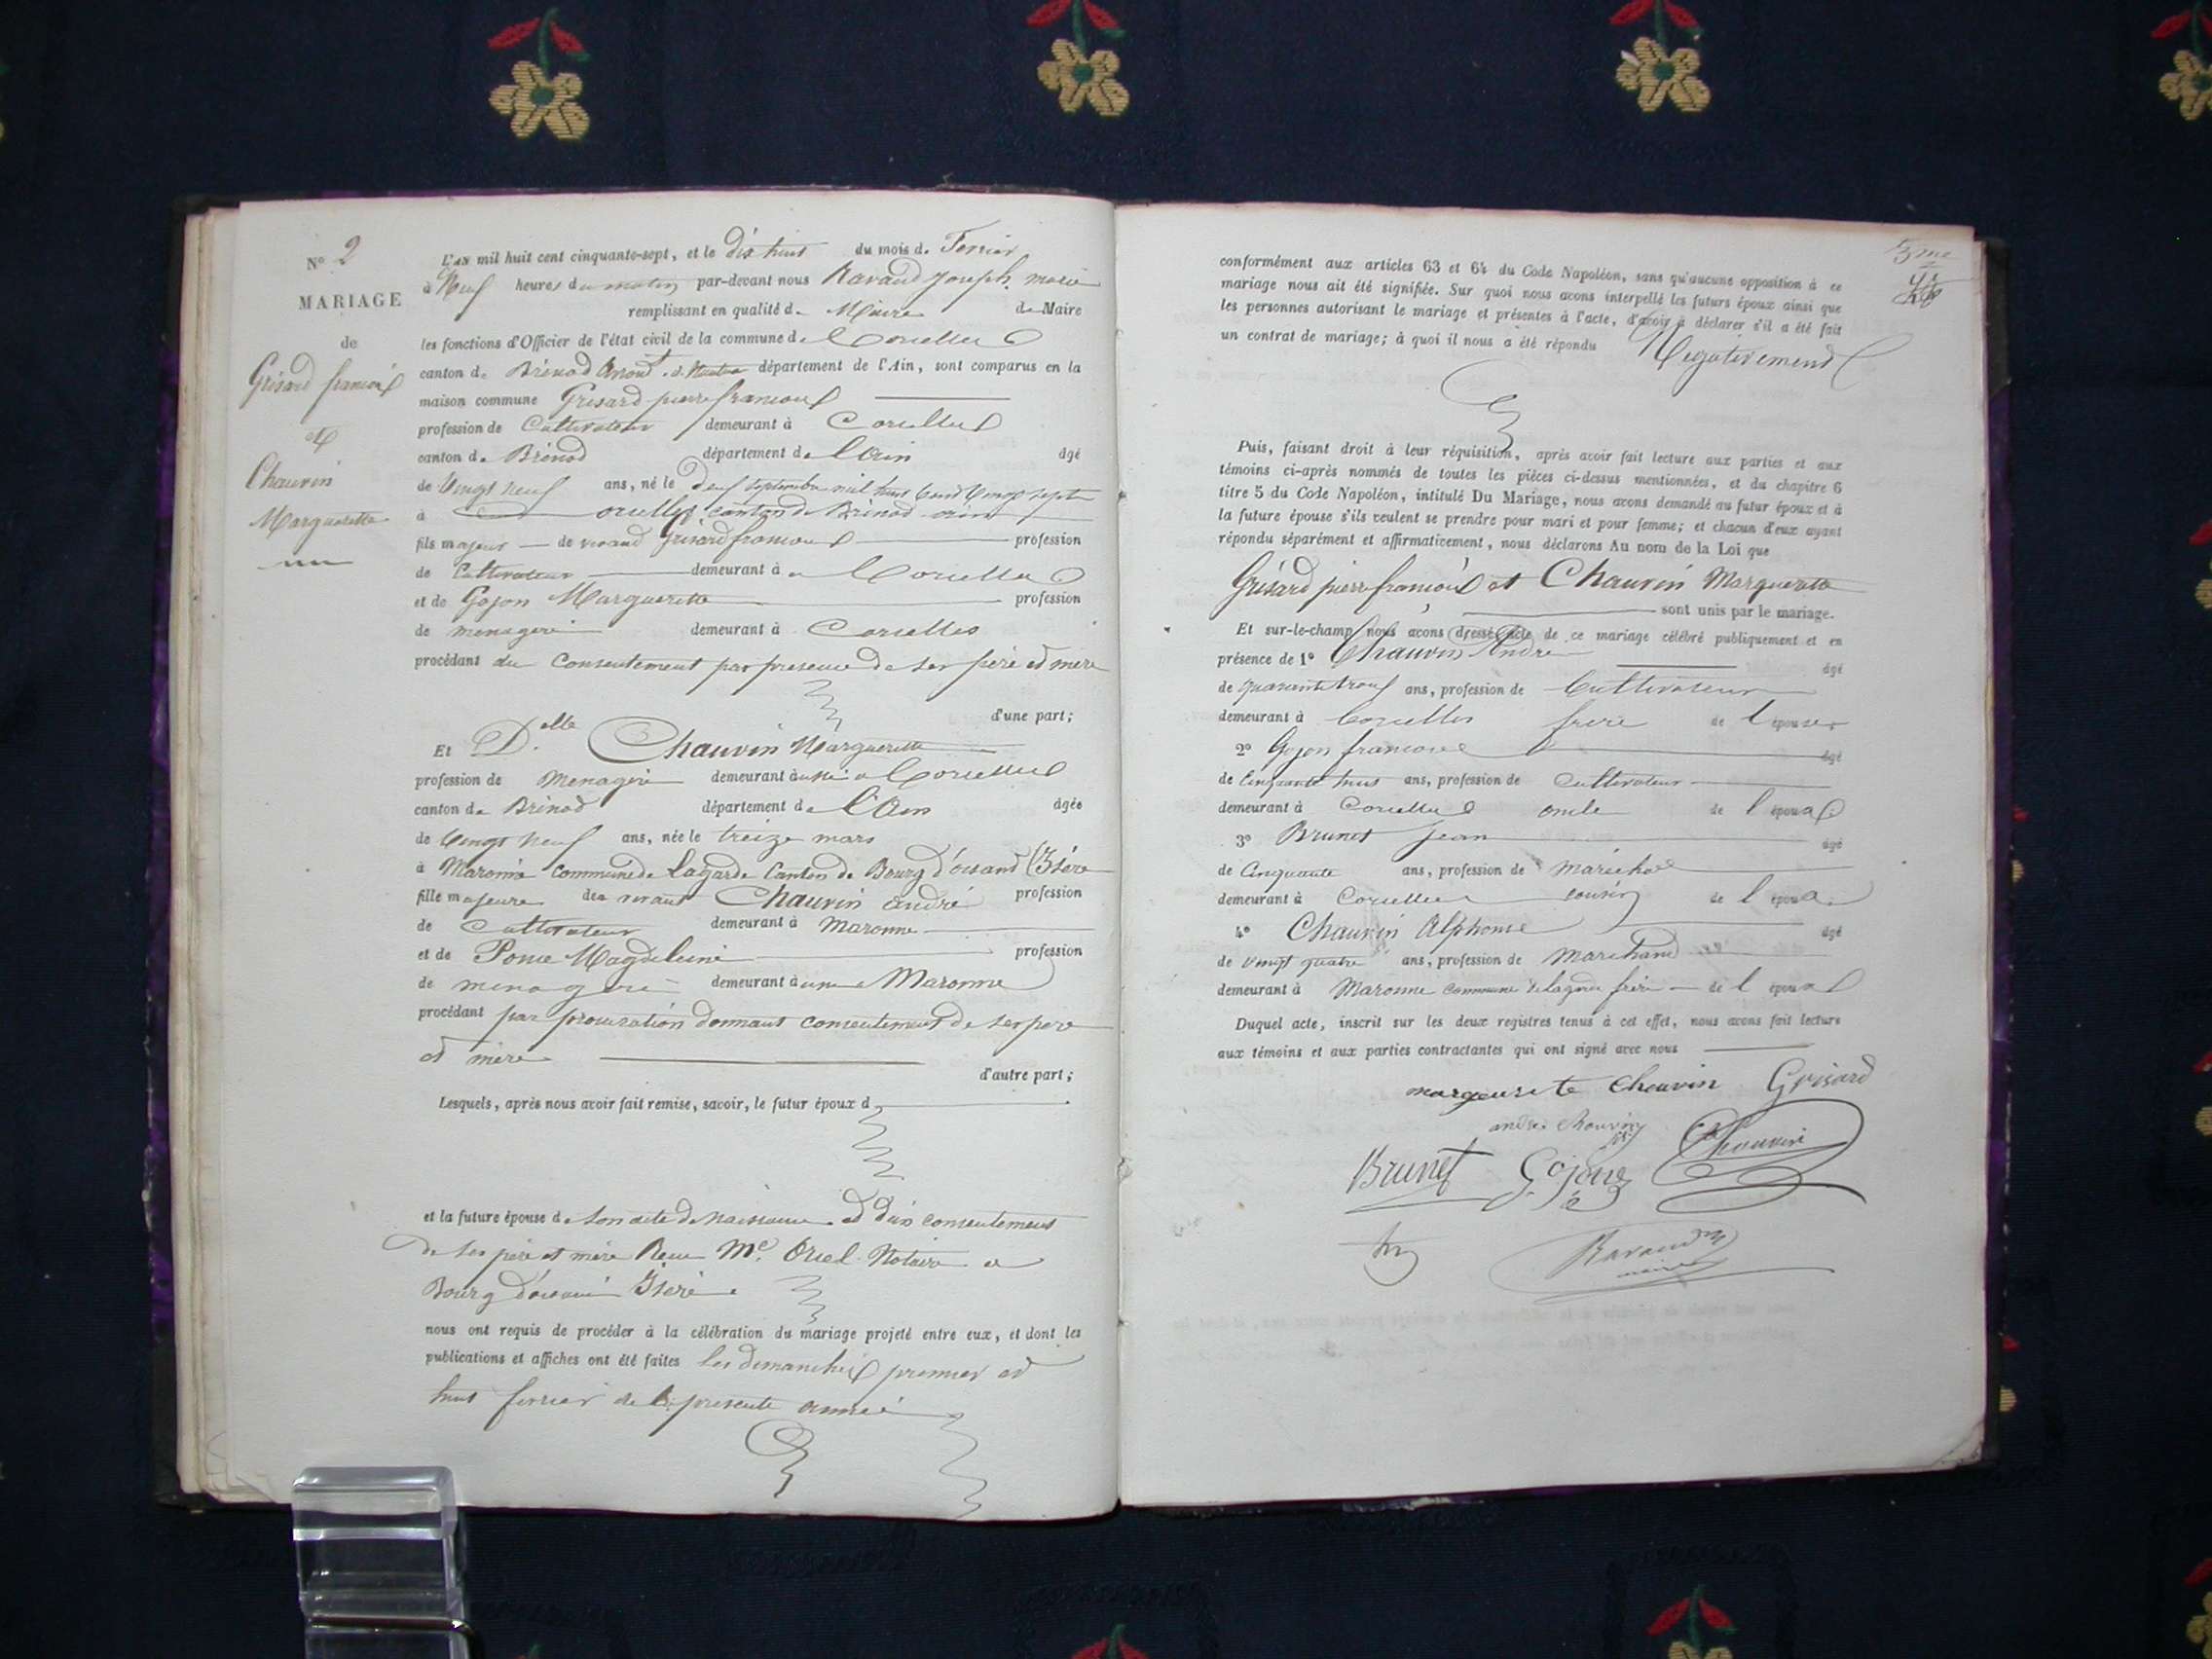 N° 2
MARIAGE
de
Grisard francois
et
Chauvin
Marguerette
L'an mil huit cent cinquante-sept, et le dix huit du mois de Fevrier
à Neuf heures du matin par-devant nous Ravaud Joseph, maire
remplissant en qualité de Maire de Maire
les fonctions d'Officier de l'état civil de la commune de Corcelles
canton de Brénod département de l'Ain, sont comparus en la
maison commune Grisard pierre francois
profession de Cultivateur demeurant à Corcelles
canton de Brénod département de l'Ain âgé
de Vingt neuf ans, né le septembre mil huit Cent Vingt sept
à Corcelles canton de Brénod Ain
fils majeur de vivand Grisard francois profession
de Cultivateur demeurant à Corcelles
et de Gojon Marguerette profession
de menagere demeurant à Corcelles
procédant du Consentement par presence de ses père et mere
d'une part;
Et D.elle Chauvin Marguerette
profession de Menagere demeurant à Corcelles
canton de Brénod département de l'Ain âgée
de Vingt neuf ans, née le treize mars
à Maronne Commune de Lagarde Canton de Bourg d'oisand (Isère
fille majeure de vivant Chauvin André profession
de Cultivateur demeurant à Maronne
et de Ponce Magdeleine profession
de menagere demeurant à Maronne
procédant par procuration donnant consentement de ses pere
et mère
d'autre part;
Lesquels, après nous avoir fait remise, savoir, le futur époux d
et la future épouse de son acte de Naissance et d'un consentement
de ses père et mère Recu Me. Notaire a
Bourg d'oisan Isère
nous ont requis de procéder à la célébration du mariage projeté entre eux, et dont les
publications et affiches ont été faites les dimanches premier et
huit fevrier de la presente année
conformément aux articles 63 et 64 du Code Napoléon, sans qu'aucune opposition à ce
mariage nous ait été signifiée. Sur quoi nous avons interpellé les futurs époux ainsi que
les personnes autorisant le mariage et présentes à l'acte, d'avoir à déclarer s'il a été fait
un contrat de mariage; à quoi il nous a été répondu Negativement
Puis, faisant droit à leur réquisition, après avoir fait lecture aux parties et aux
témoins ci-après nommés de toutes les pièces ci-dessus mentionnées, et du chapitre 6
titre 5 du Code Napoléon, intitulé Du Mariage, nous avons demandé au futur époux et à
la future épouse s'ils veulent se prendre pour mari et pour femme; et chacun d'eux ayant
répondu séparément et affirmativement, nous déclarons Au nom de la Loi que
Grisard pierre francois et Chauvin Marguerette
sont unis par le mariage.
Et sur-le-champ nous avons dressé acte de ce mariage célébré publiquement et en
présence de 1° Chauvin Andre âgé
de quarante ans, profession de Cultivateur
demeurant à Corcelles frere de l'épouse
2° Gojon francois âgé
de Cinquante huit ans, profession de Cultivateur
demeurant à Corcelles oncle de l'époux
3° Brunet Jean âgé
de Cinquante ans, profession de maréchal
demeurant à Corcelles cousin de l
4° Chauvin Alphonse âgé
de vingt quatre ans, profession de Marchand
demeurant à Maronne Commune de Lagarde frère de l
Duquel acte, inscrit sur les deux registres tenus à cet effet, nous avons fait lecture
aux témoins et aux parties contractantes qui ont signé avec nous
marguerite Chauvin Grisard
andré Chauvin Chauvin
Brunet Gojon
Ravaud
maire